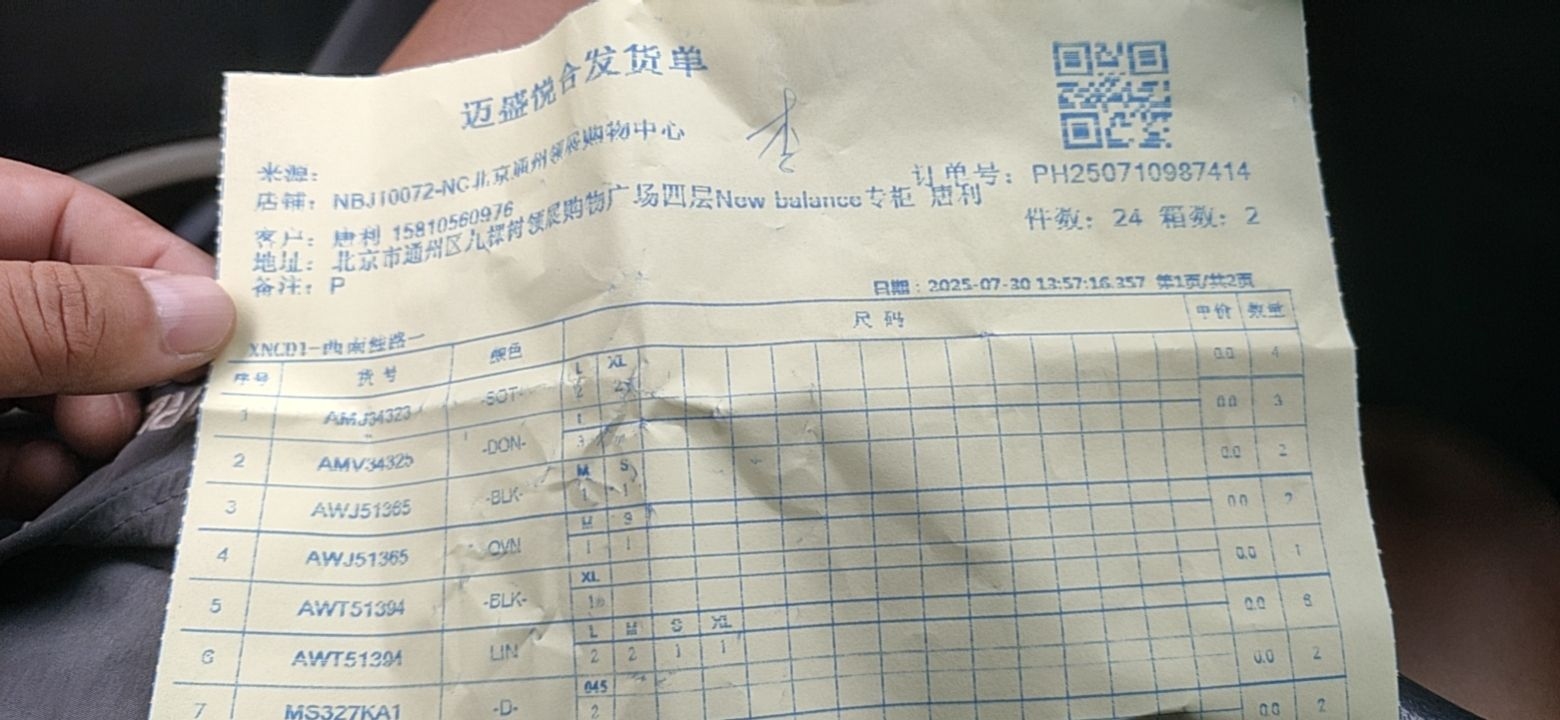 迈盛悦合发货单
来源:
店铺: NBJ10072-NC北京通州领展购物中心
订单号: PH250710987414
客户: 唐利 15810560976
件数: 24 箱数: 2
地址: 北京市通州区九棵树领展购物广场四层New balance专柜 唐利
备注: P
日期:2025-07-30 13:57:16.357 第1页/共2页
XNCD1-西南线路一
序号 货号 颜色 尺码 单价 数量
L XL
1 AMJ34323 -SOT- 2 2 0.0 4
1
2 AMV34325 -DON- 3 0.0 3
M S
3 AWJ51365 -BLK- 1 1 0.0 2
M S
4 AWJ51365 OVN 1 1 0.0 2
XL
5 AWT51394 -BLK- 1 0.0 1
L M S XL
6 AWT51394 LIN 2 2 1 1 0.0 6
045
7 MS327KA1 -D- 2 0.0 2
0.0 2